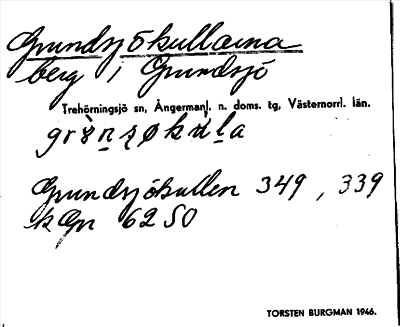 Grundsjökullarna
berg i Grundsjö
Trehörningsjö sn, Ångermanl. n. doms. tg, Västernorrl. län.
Grundsjökullen 349, 339
k Gn 62 SO
TORSTEN BURGMAN 1946.